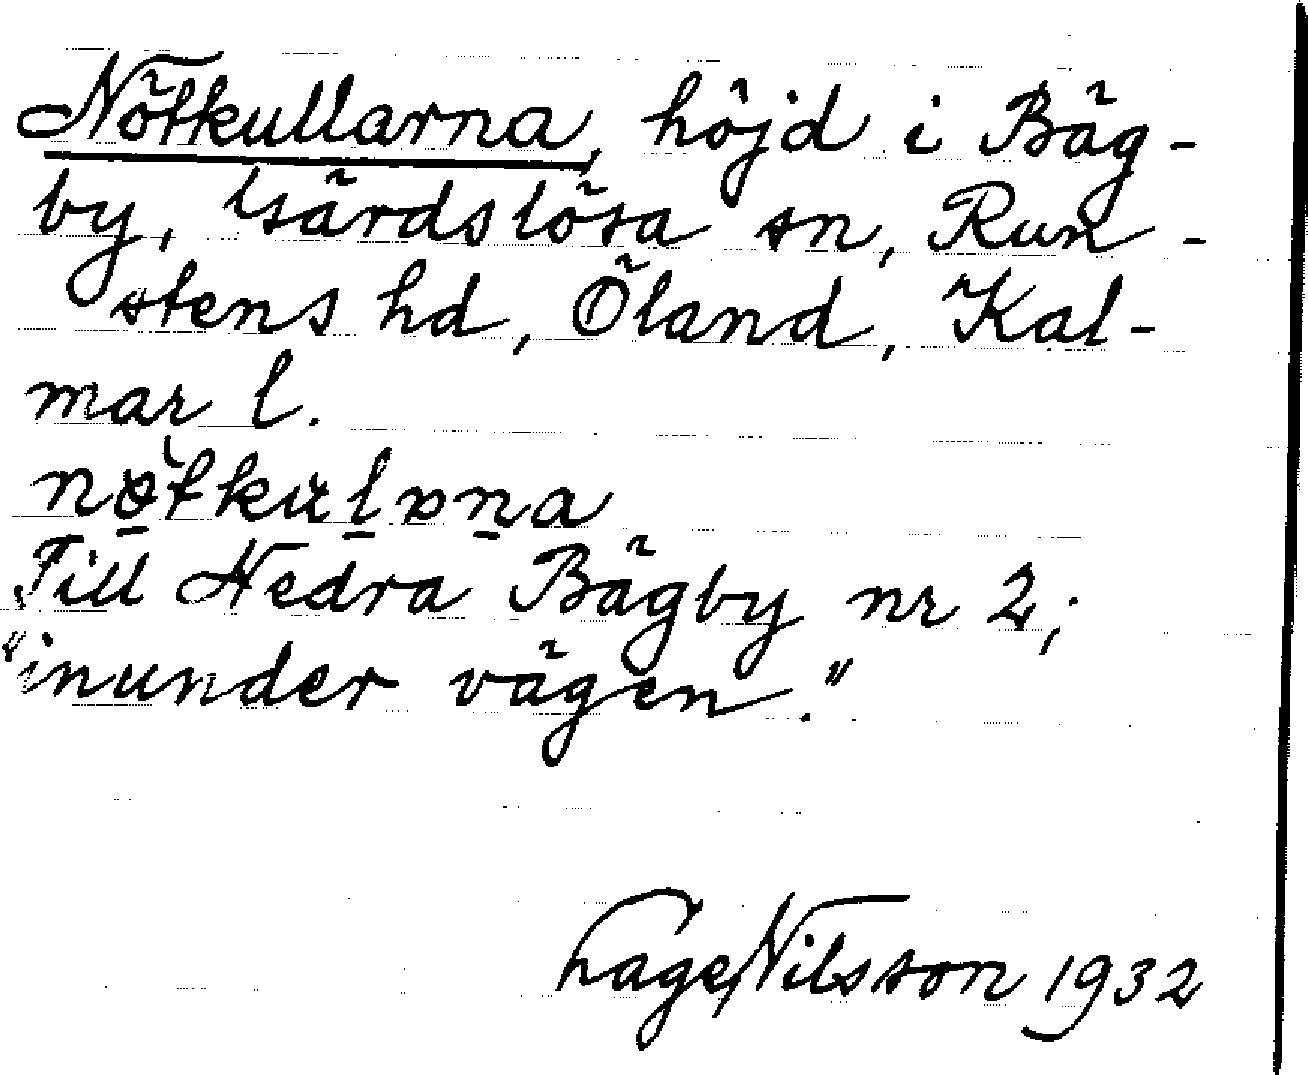 Nötkullarna, höjd i Bäg-
by, Gärdslösa sn, Run-
stens hd, Öland, Kal-
mar l.
Till Nedra Bägby nr 2;
"inunder vägen."
Lage Nilsson 1932